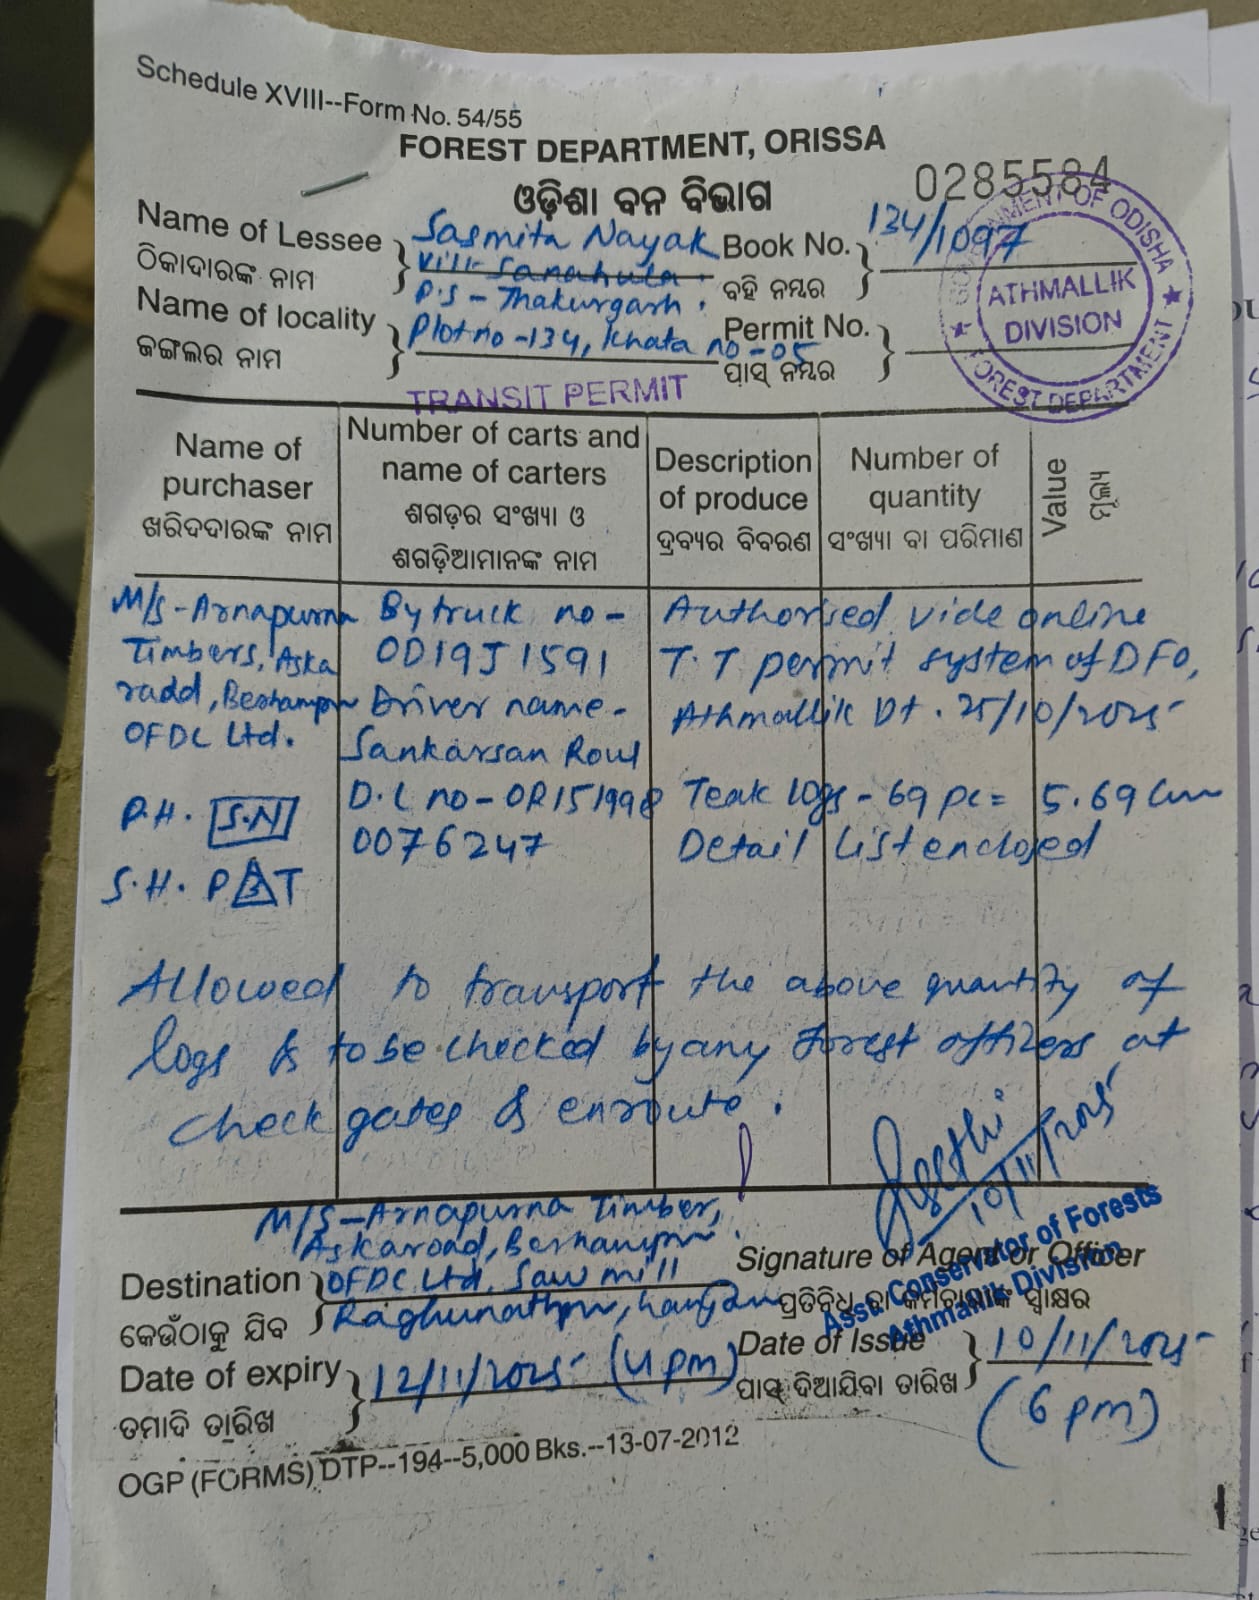 Schedule XVIII--Form No. 54/55
FOREST DEPARTMENT, ORISSA
ଓଡ଼ିଶା ବନ ବିଭାଗ
0285584
Name of Lessee
ଠିକାଦାରଙ୍କ ନାମ
Sasmita Nayak
Vill-
P.S - Thakurgarh.
Book No.
ବହି ନମ୍ବର
134/1097
Name of locality
ଜଙ୍ଗଲର ନାମ
Plot no -134, Khata no -05
Permit No.
ପାସ୍ ନମ୍ବର
GOVERNMENT OF ODISHA
ATHMALLIK
DIVISION
FOREST DEPARTMENT
TRANSIT PERMIT
Name of
purchaser
ଖରିଦଦାରଙ୍କ ନାମ
Number of carts and
name of carters
ଶଗଡ଼ର ସଂଖ୍ୟା ଓ
ଶଗଡ଼ିଆମାନଙ୍କ ନାମ
Description
of produce
ଦ୍ରବ୍ୟର ବିବରଣ
Number of
quantity
ସଂଖ୍ୟା ବା ପରିମାଣ
Value
ମୂଲ୍ୟ
M/S - Arnapurna
Timbers, Aska
radd, Berhampur
OFDC Ltd.
P.H. S.N
S.H. P 3 T
By truck no -
OD19J1591
Driver name -
Sankarsan Rout
D.L no - OR151998
0076247
Authorised vide online
T.T permit system of DFO,
Athmallik Dt. 25/10/2025
Teak logs - 69 pc = 5.69 Cum
Detail List enclosed
Allowed to transport the above quantity of
logs & to be checked by any forest officers at
check gates & enroute.
10/11/2025
M/S - Arnapurna Timber,
Askaroad, Berhampur.
Destination
କେଉଁଠାକୁ ଯିବ
OFDC Ltd, Saw mill
Raghunathpur, Ganjam
Signature of Agent or Officer
ପ୍ରତିନିଧି ବା କର୍ମଚାରୀଙ୍କ ସ୍ୱାକ୍ଷର
Asst. Conservator of Forests
Athmallik Division
Date of expiry
ତମାଦି ତାରିଖ
12/11/2025 (4 pm)
Date of Issue
ପାସ୍ ଦିଆଯିବା ତାରିଖ
10/11/2025
(6 pm)
OGP (FORMS) DTP--194--5,000 Bks.--13-07-2012